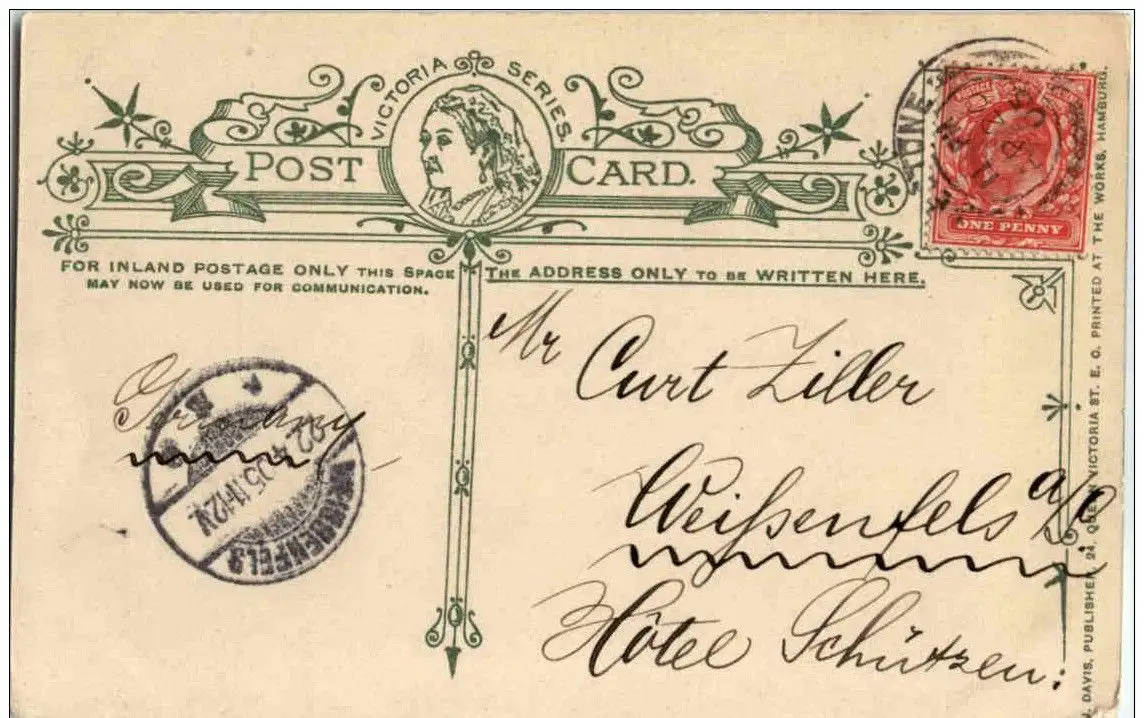 VICTORIA SERIES.
POST CARD.
FOR INLAND POSTAGE ONLY THIS SPACE
MAY NOW BE USED FOR COMMUNICATION.
THE ADDRESS ONLY TO BE WRITTEN HERE.
ONE PENNY
Mr Curt Ziller
Weißenfels a/S
Hôtel Schützen:
Germany
22.4.05.11-12V.
WEISSENFELS
DAVIS, PUBLISHER, 24, QUEEN VICTORIA ST. E. C. PRINTED AT THE WORKS, HAMBURG.